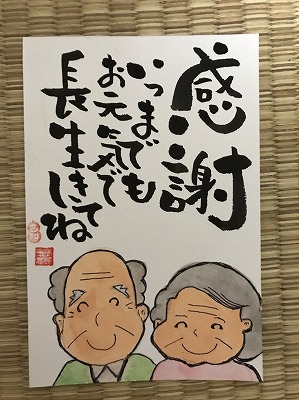 感謝
いつまでも
お元気で
長生きしてね